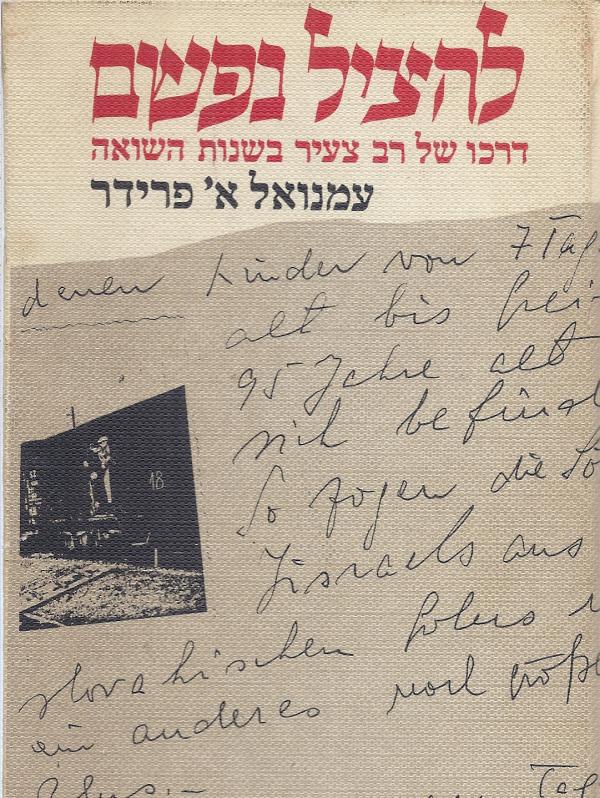 להציל נפשם
דרכו של רב צעיר בשנות השואה
עמנואל א׳ פרידר
denen Kinder von 7 Tag
alt bis
95 Jahre alt
sich befind
So zogen die Sö
Jisraels aus
slovakischen Golus
ein anderes noch größe
18
Tag